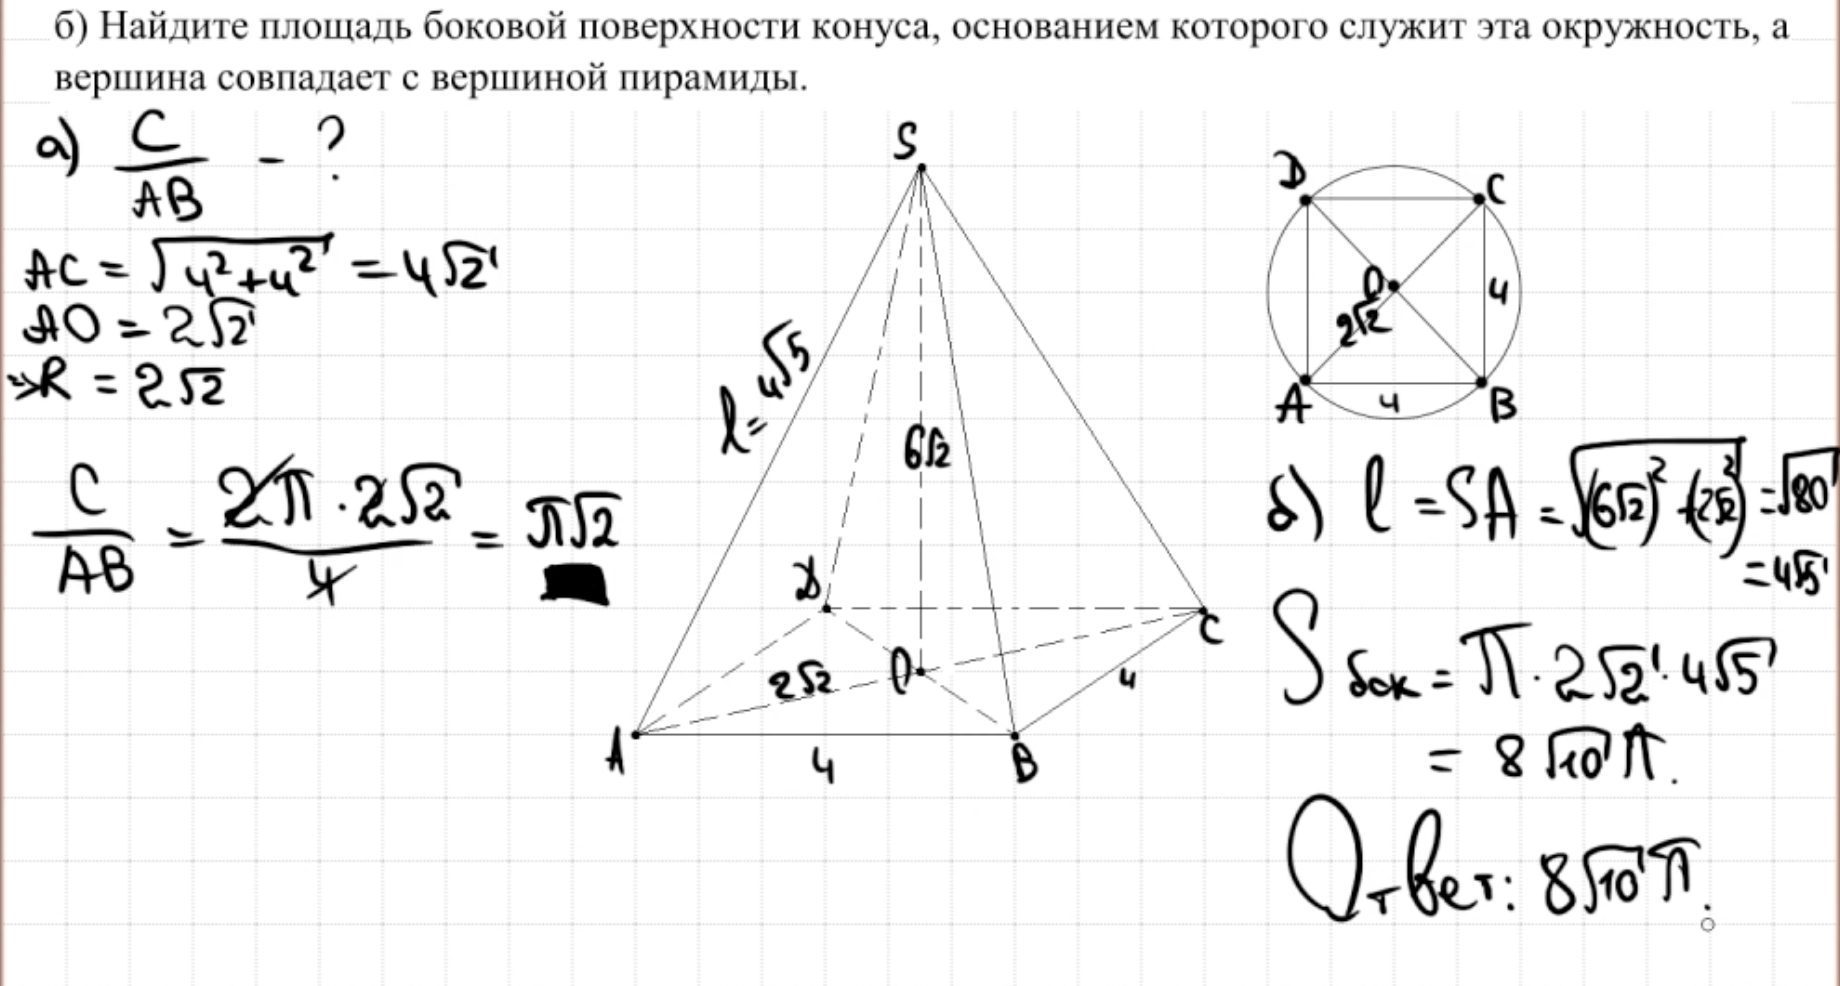 б) Найдите площадь боковой поверхности конуса, основанием которого служит эта окружность, а
вершина совпадает с вершиной пирамиды.
а) C/AB - ?
AC = √(4²+4²) = 4√2
AO = 2√2
⇒R = 2√2
C/AB = 2π · 2√2/4 = π√2
S
l = 4√5
6√2
D
C
2√2
O
4
A
B
4
D
C
O
4
2√2
A
4
B
б) l = SA = √((6√2)² + (2√2)²) = √80
= 4√5
S бок = π · 2√2 · 4√5
= 8√10 π.
Ответ: 8√10 π.